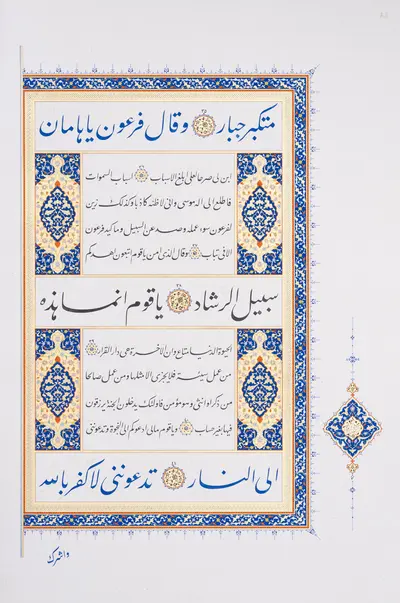 متكبر جبار وقال فرعون ياهامان
ابن لى صرحا لعلى ابلغ الاسباب اسباب السموات
فاطلع الى اله موسى وانى لاظنه كاذبا وكذلك زين
لفرعون سوء عمله وصد عن السبيل وما كيد فرعون
الا فى تباب وقال الذى امن ياقوم اتبعون اهدكم
سبيل الرشاد ياقوم انما هذه
الحيوة الدنيا متاع وان الاخرة هى دار القرار
من عمل سيئة فلا يجزى الا مثلها ومن عمل صالحا
من ذكر او انثى وهو مؤمن فاولئك يدخلون الجنة يرزقون
فيها بغير حساب وياقوم مالى ادعوكم الى النجوة وتدعوننى
الى النار تدعوننى لاكفر بالله
واشرك